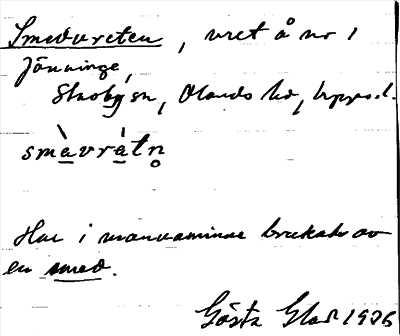 Smedvreten, vret å nr 1
Jönninge,
Skäfthammar sn, Olands hd, Uppsl.
smèvrátn̥
Har i mannaminne brukats av
en smed.
Gösta Glad 1926